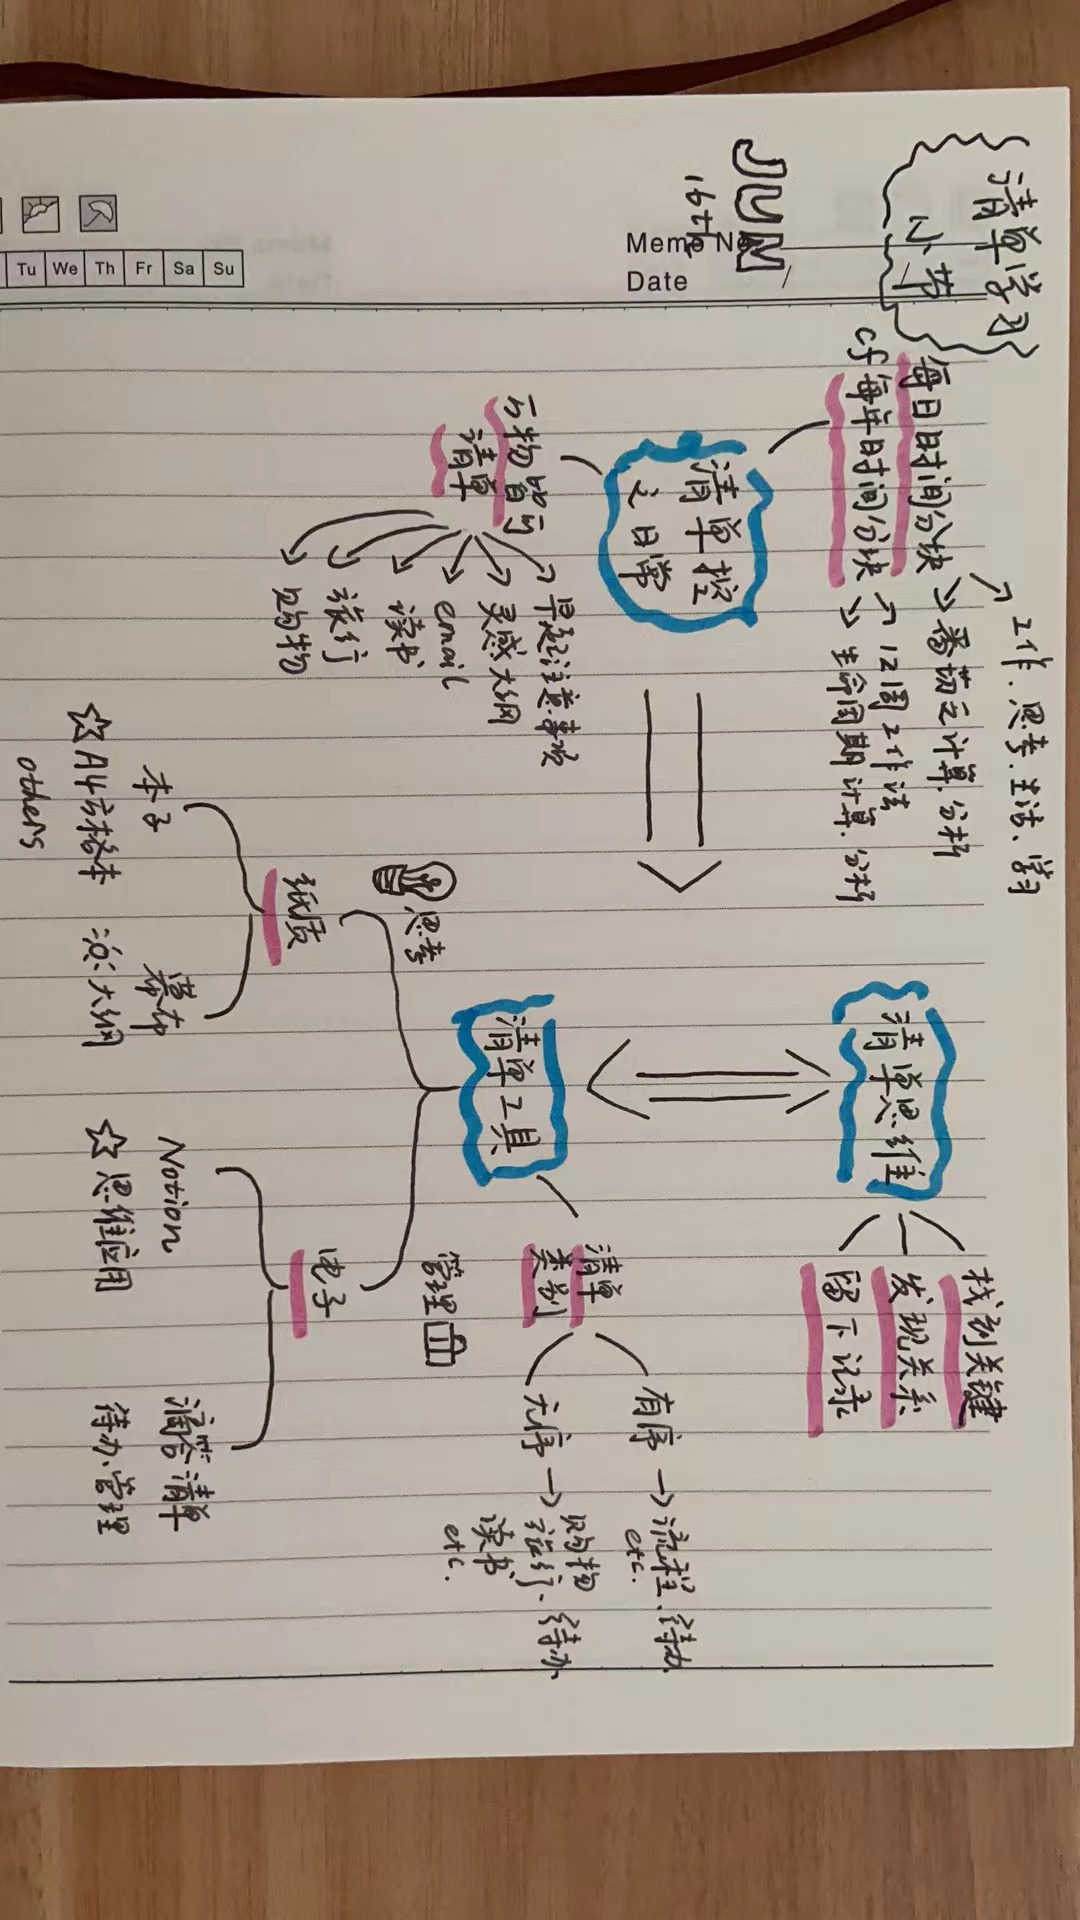 清单学习
小节
JUN
16th
Memo No.
Date / /
Tu We Th Fr Sa Su
每日时间分块
工作、思考、生活、学习
番茄云计算、分析
cf 每年时间分块
12周工作法
生命周期计算、分析
清单控
之日常
万物皆可
清单
早起注意事项
灵感大纲
email
读书
旅行
购物
清单思维
找到关键
发现关系
留下记录
清单工具
清单
类别
有序 → 流程、待办
etc.
无序 → 购物
旅行、待办
读书
etc.
思考
纸质
本子
☆A4方格本
others
幕布
大纲
管理
电子
Notion
☆思维应用
滴答清单
待办管理